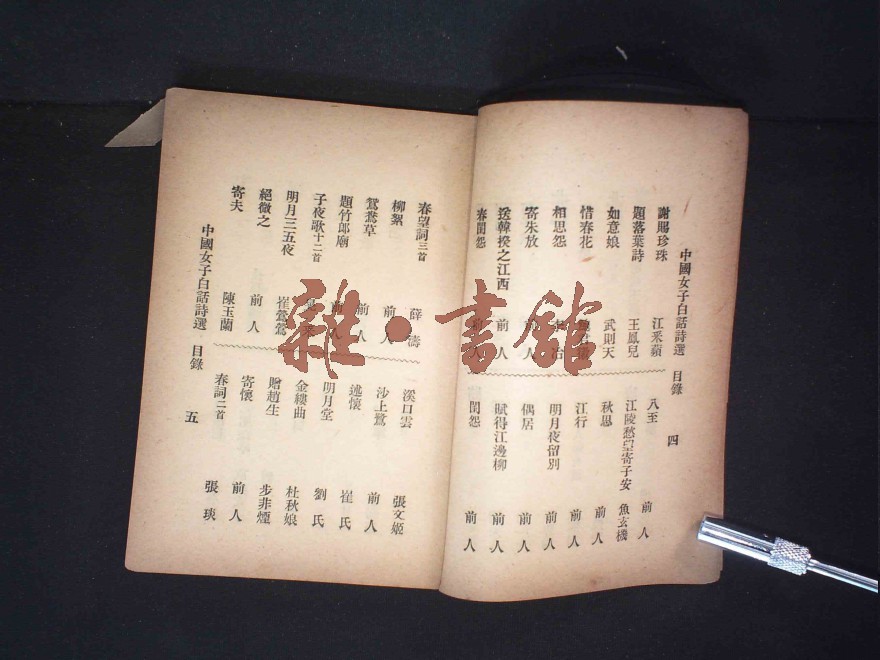 中國女子白話詩選 目錄 四
謝賜珍珠 江采蘋
題落葉詩 王鳳兒
如意娘 武則天
惜春花
相思怨 冶
寄朱放 人
送韓揆之江西 前人
春閨怨 人
八至 前人
江陵愁望寄子安 魚玄機
秋思 前人
江行 前人
明月夜留別 前人
偶居 前人
賦得江邊柳 前人
閨怨 前人
春望詞三首 薛濤
柳絮 前人
鴛鴦草 前人
題竹郎廟 前人
子夜歌十二首 采
明月三五夜 崔鶯鶯
絕微之 前人
寄夫 陳玉蘭
溪口雲 張文姬
沙上鷺 前人
述懷 崔氏
明月堂 劉氏
金縷曲 杜秋娘
贈趙生 步非煙
寄懷 前人
春詞二首 張琰
中國女子白話詩選 目錄 五
雜·書館